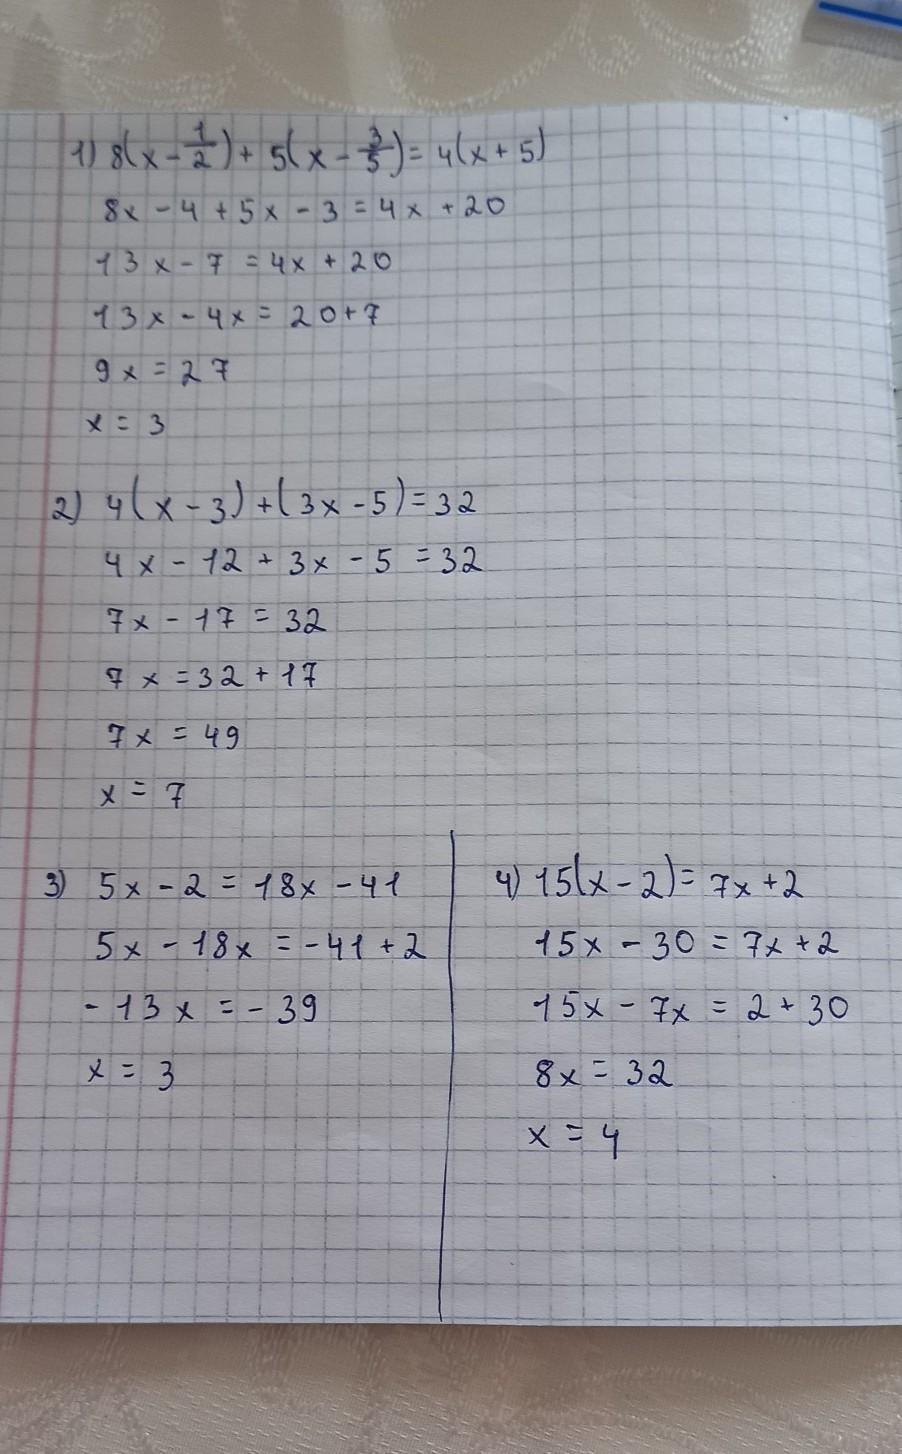 1) 8(x - 1/2) + 5(x - 3/5) = 4(x + 5)
8x - 4 + 5x - 3 = 4x + 20
13x - 7 = 4x + 20
13x - 4x = 20 + 7
9x = 27
x = 3
2) 4(x - 3) + (3x - 5) = 32
4x - 12 + 3x - 5 = 32
7x - 17 = 32
7x = 32 + 17
7x = 49
x = 7
3) 5x - 2 = 18x - 41
5x - 18x = -41 + 2
-13x = -39
x = 3
4) 15(x - 2) = 7x + 2
15x - 30 = 7x + 2
15x - 7x = 2 + 30
8x = 32
x = 4